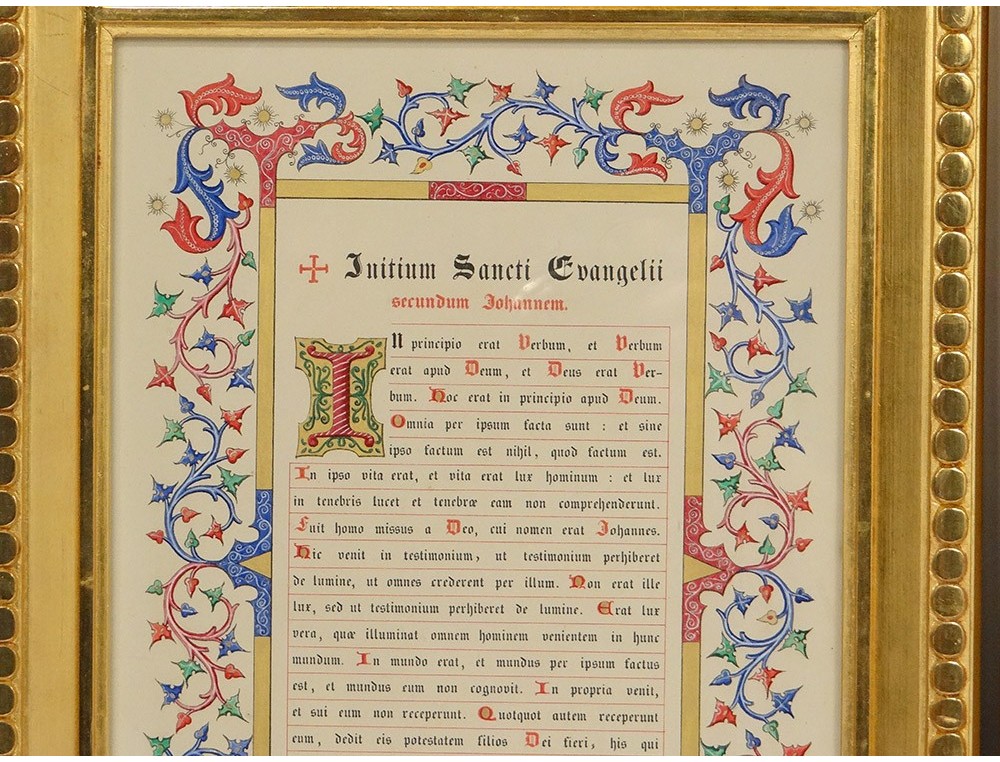 ✢ Initium Sancti Evangelii
secundum Johannem.
IN principio erat Verbum, et Verbum
erat apud Deum, et Deus erat Ver-
bum. Hoc erat in principio apud Deum.
Omnia per ipsum facta sunt : et sine
ipso factum est nihil, quod factum est.
In ipso vita erat, et vita erat lux hominum : et lux
in tenebris lucet et tenebræ eam non comprehenderunt.
Fuit homo missus a Deo, cui nomen erat Johannes.
Hic venit in testimonium, ut testimonium perhiberet
de lumine, ut omnes crederent per illum. Non erat ille
lux, sed ut testimonium perhiberet de lumine. Erat lux
vera, quæ illuminat omnem hominem venientem in hunc
mundum. In mundo erat, et mundus per ipsum factus
est, et mundus eum non cognovit. In propria venit,
et sui eum non receperunt. Quotquot autem receperunt
eum, dedit eis potestatem filios Dei fieri, his qui